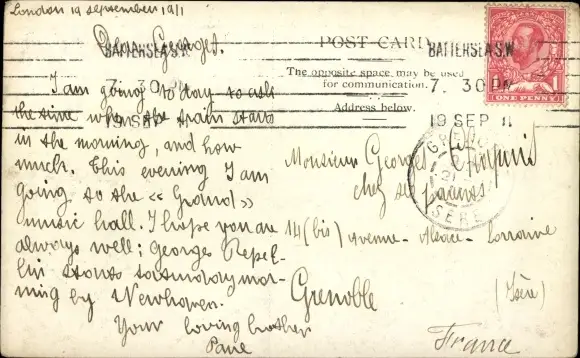 London 19 september 1911
Dear Georges.
I am going to day to ask
the time when the train starts
in the morning, and how
much. This evening I am
going to the « Grand »
music hall. I hope you are
always well; Georges Repel-
lin starts saturday mor-
ning by Newhaven.
Your loving brother
POST CARD
The opposite space may be used
for communication.
Address below.
BATTERSEA S.W
7. 30 PM
19 SEP 11
BATTERSEA S.W
7. 30 PM
19 SEP 11
ONE PENNY
ISERE
Monsieur Georges
chez ses parents
14 (bis) avenue - Alsace - Lorraine
Grenoble
(Isère)
France